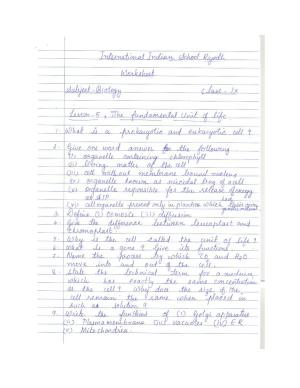 International Indian School Riyadh
Worksheet
Subject-Biology Class-IX
Lesson-5, The fundamental Unit of life
1. What is a prokaryotic and eukaryotic cell?
2. Give one word answer for the following
(i) organelle containing chlorophyll
(ii) living matter of the cell
(iii) cell without membrane bound
(iv) organelle known as suicidal bag of a cell
(v) organelle responsible for the release of energy
as ATP
(vi) cell organelle present only in plants which
3. Define (i) Osmosis (ii) diffusion
4. Give the difference between leucoplast and
chromoplast
5. Why is the cell called the unit of life?
6. What is a gene? Give its functions
7. Name the process by which CO and H2O
move into and out of the cell.
8. State the technical term for a medium
which has exactly the same concentration
as the cell? Why does the size of the
cell remain the same when placed in
such a solution?
9. Write the functions of (i) Golgi apparatus
(ii) Plasma membrane (iii) vacuoles (iv) E.R
(v) Mitochondria